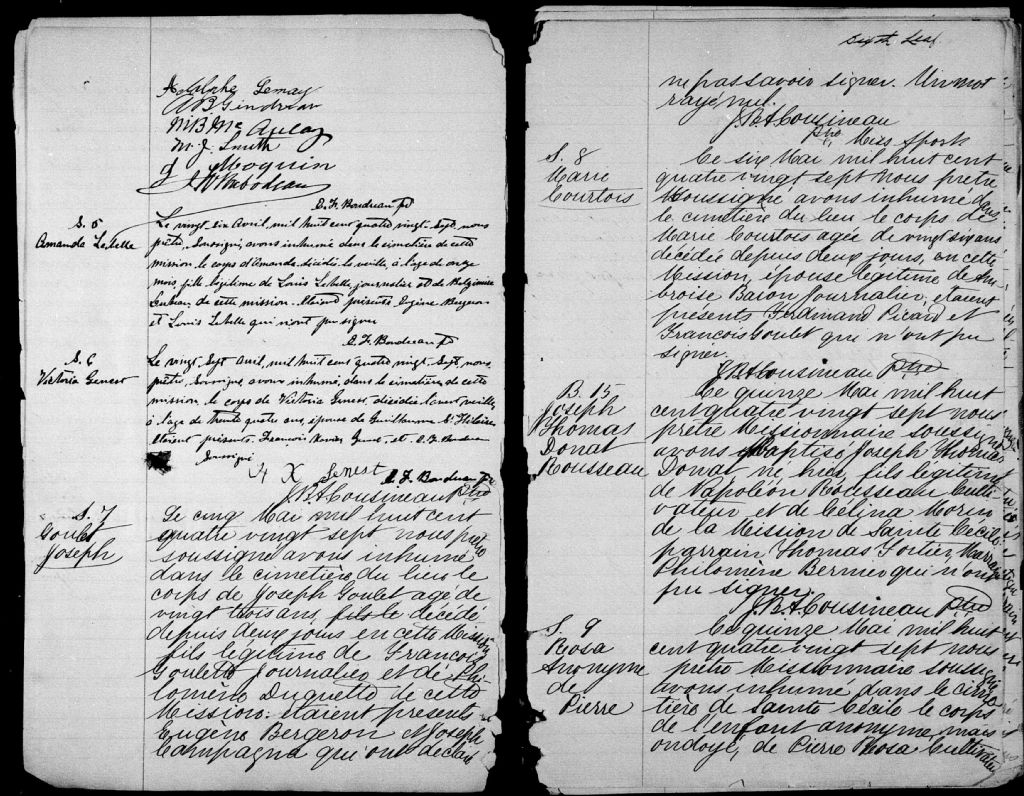 Adolphe Lemay
A B Gendreau
M B Mc Aulay
M. J. Smith
J Moquin
J N Naboreau
O. F. Bondreau ptr
S. 5
Amanda Labelle
Le vingt six Avril, mil huit cent quatre vingt Sept, nous
prêtre, soussigné, avons inhumé dans le cimetière de cette
mission, le corps d'Amanda décédée la veille, à l'age de onze
mois, fille légitime de Louis Labelle journalier et de
de cette mission. Étaient présents, Eugène Bergeron
et Louis Labelle qui n'ont pu signer
O. F. Bondreau ptr
S. 6
Victoria Genest
Le vingt Sept Avril, mil huit cent quatre vingt Sept, nous
prêtre, soussigné, avons inhumé, dans le cimetière de cette
mission, le corps de Victoria Genest, décédée l'avant veille,
à l'age de trente quatre ans, épouse de Guillaume St Hilaire
étaient présents, François Xavier Genest et O. F. Bondreau
soussigné
X Genest O. F. Bondreau ptr
J.B.A Cousineau Ptre
S. 7
Goulet
Joseph
Le cinq Mai mil huit cent
quatre vingt sept nous prêtre
soussigné avons inhumé
dans le cimetière du lieu le
corps de Joseph Goulet agé de
vingt trois ans, fils le décédé
depuis deux jours en cette Mission
fils légitime de François
Goulette Journalier et de Phi-
lomène Duquette de cette
Mission. étaient présents
Eugène Bergeron & Joseph
Campagna qui ont déclaré
Sixth Leaf
ne pas savoir signer. Un mot
rayé nul.
J.B.A Cousineau
Ptre, Miss Apost
S. 8
Marie
Courtois
Le six Mai mil huit cent
quatre vingt sept nous prêtre
soussigné avons inhumé dans
le cimetière du lieu le corps de
Marie Courtois agée de vingt six ans
décédée depuis deux jours, en cette
Mission, épouse légitime de Am-
broise Baron Journalier, étaient
présents Ferdinand Picard et
François Goulet qui n'ont pu
signer.
J.B.A Cousineau Ptre
B. 15
Joseph
Thomas
Donat
Rousseau
Le quinze Mai mil huit
cent quatre vingt sept nous
prêtre Missionnaire soussigné
avons Baptisé Joseph Thomas
Donat né hier, fils légitime
de Napoléon Rousseau Culti-
vateur et de Célina Morin
de la Mission de Sainte Cécile
parrain Thomas Fortier, Marraine
Philomène Bernier qui n'ont
pu signer.
J.B.A Cousineau Ptre
S. 9
Rosa
Anonyme
de
Pierre
Le quinze Mai mil huit
cent quatre vingt sept nous
prêtre Missionnaire soussigné
avons inhumé dans le cime-
tière de Sainte Cécile le corps
de l'enfant anonyme, mais
ondoyé, de Pierre Rosa Cultivateur